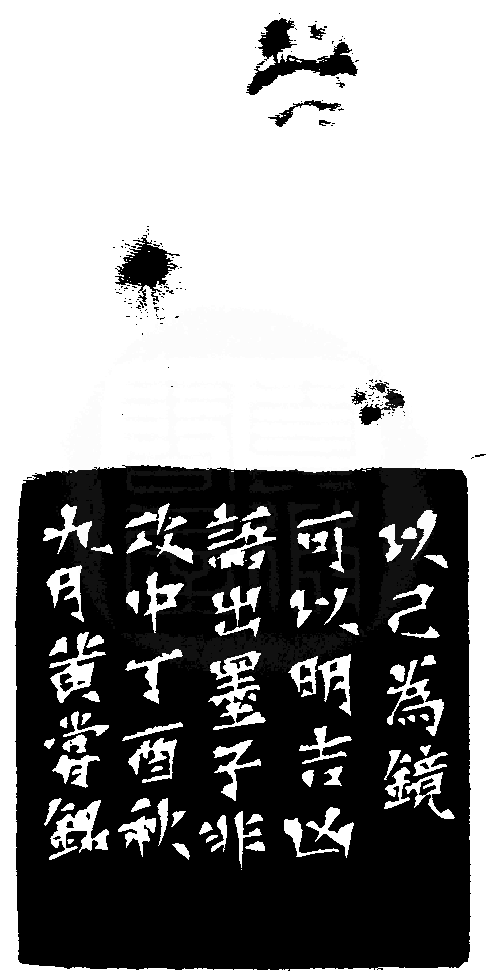 以己為鏡
可以明吉凶
語出墨子非
攻中丁酉秋
九月黄嘗銘